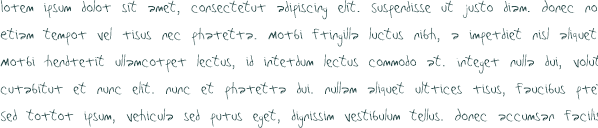 lorem ipsum dolor sit amet, consectetur adipiscing elit. suspendisse ut justo diam. donec no
etiam tempor vel risus nec pharetra. morbi fringilla luctus nibh, a imperdiet nisl aliquet
morbi hendrerit ullamcorper lectus, id interdum lectus commodo at. integer nulla dui, volut
curabitur et nunc elit. nunc et pharetra dui. nullam aliquet ultrices risus, faucibus pre
sed tortor ipsum, vehicula sed purus eget, dignissim vestibulum tellus. donec accumsan facilis